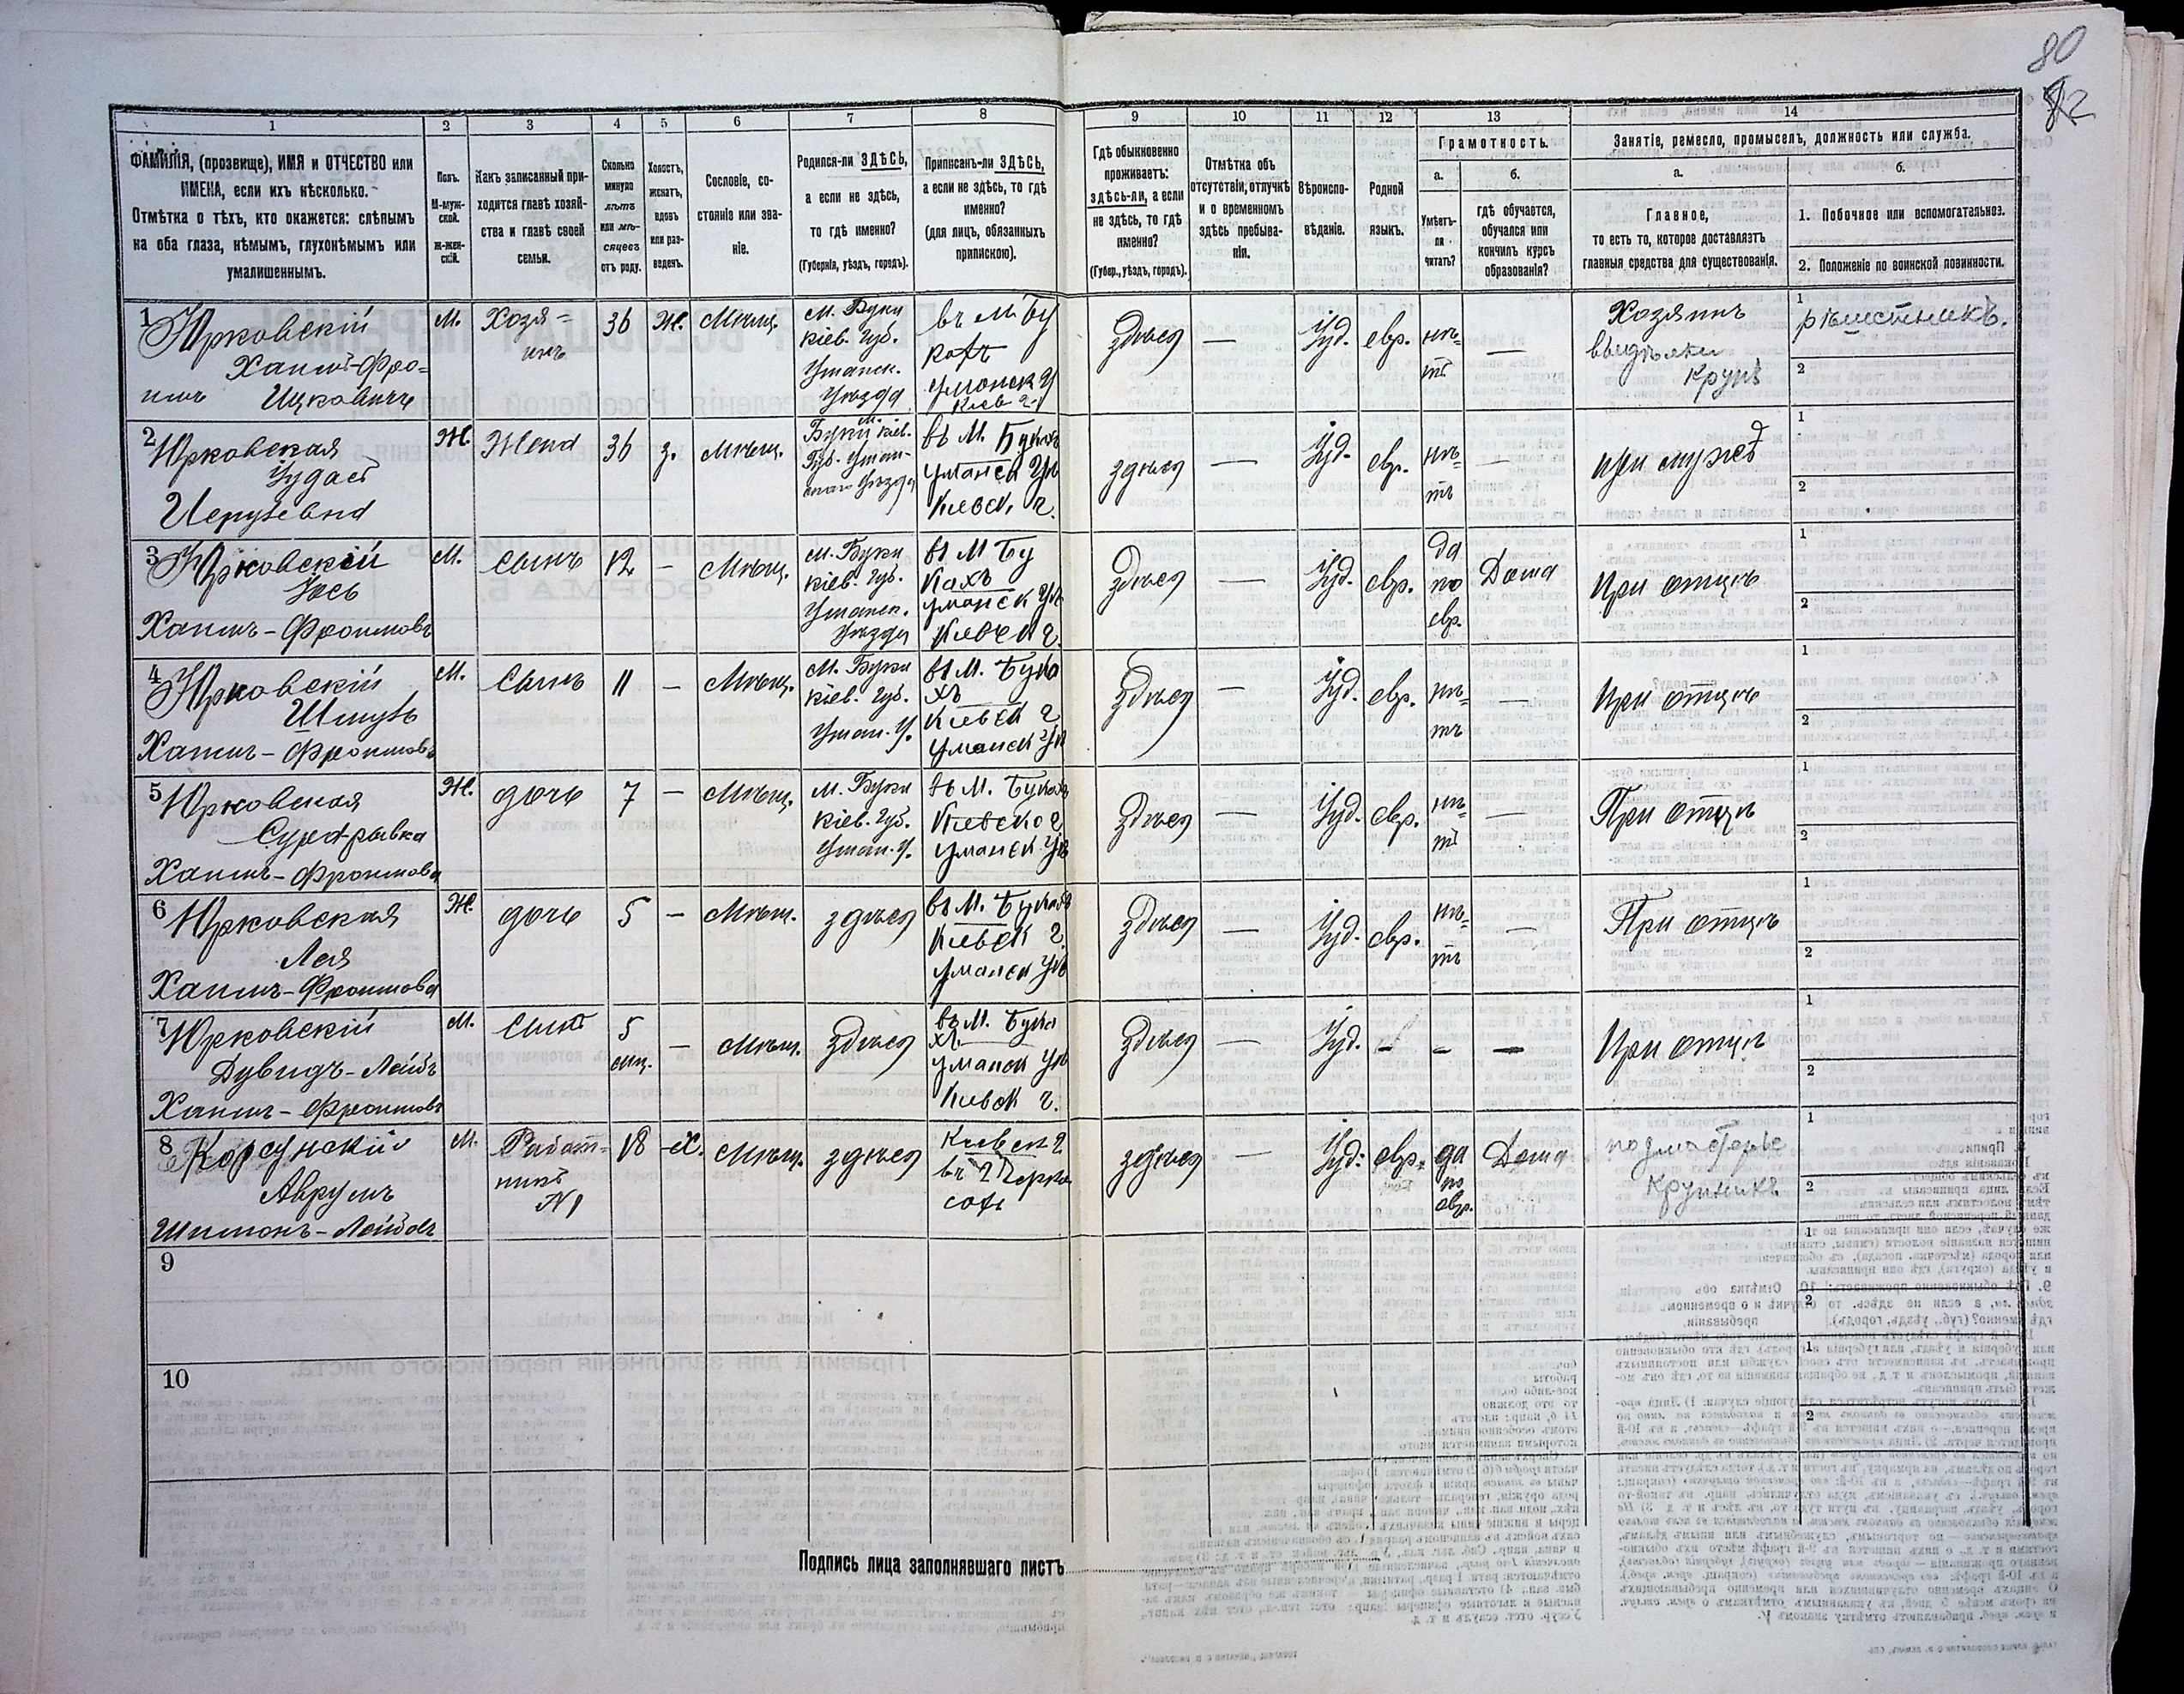 80
82
1 2 3 4 5 6 7 8 9 10 11 12 13 14
ФАМИЛІЯ, (прозвище), ИМЯ и ОТЧЕСТВО или
ИМЕНА, если ихъ нѣсколько.
Отмѣтка о тѣхъ, кто окажется: слѣпымъ
на оба глаза, нѣмымъ, глухонѣмымъ или
умалишеннымъ.
Полъ.
М-муж-
ской.
ж-жен-
скій.
Какъ записанный при-
ходится главѣ хозяй-
ства и главѣ своей
семьи.
Сколько
минуло
лѣтъ
или мѣ-
сяцевъ
отъ роду.
Холостъ,
женатъ,
вдовъ
или раз-
веденъ.
Сословіе, со-
стояніе или зва-
ніе.
Родился-ли ЗДѢСЬ,
а если не здѣсь,
то гдѣ именно?
(Губернія, уѣздъ, городъ).
Приписанъ-ли ЗДѢСЬ,
а если не здѣсь, то гдѣ
именно?
(для лицъ, обязанныхъ
припискою).
Гдѣ обыкновенно
проживаетъ:
здѣсь-ли, а если
не здѣсь, то гдѣ
именно?
(Губер., уѣздъ, городъ).
Отмѣтка объ
отсутствіи, отлучкѣ
и о временномъ
здѣсь пребыва-
ніи.
Вѣроиспо-
вѣданіе.
Родной
языкъ.
Грамотность.
а.
Умѣетъ-
ли
читать?
б.
гдѣ обучается,
обучался или
кончилъ курсъ
образованія?
Занятіе, ремесло, промыселъ, должность или служба.
а.
Главное,
то есть то, которое доставляэтъ
главныя средства для существованія.
б.
1. Побочное или вспомогательное.
2. Положеніе по воинской повинности.
1 Юрковскій
Хаимъ-Фро=
имъ Ицковичъ
М.
Хозя=
инъ
36
Ж.
Мѣщ.
М. Буки
Кіев. Губ.
Уманск.
Уѣзда
въ М. Бу
кахъ
Уманск У
Киев г.
Здѣся
—
Іуд.
евр.
нѣ=
тъ
—
Хозяинъ
выдѣлки
Крупъ
1
рѣшетникъ.
2
2 Юрковская
Ж.
Жена
36
з.
Мѣщ.
М.
Буки Кіев.
Губ. Уман-
Уѣзда
въ М. Букахъ
Уманск Уѣ
Киевск. г.
здѣся
—
Іуд.
евр.
нѣ=
тъ
—
при мужѣ
1
2
3 Юрковскій
Хаимъ-Фроимовъ
М.
Сынъ
12
—
Мѣщ.
М. Буки
Кіев. Губ.
Уманск.
Уѣзда
въ М Бу
Кахъ
Уманск Уѣ
Киевск г.
Здѣся
—
Іуд.
евр.
да
по
евр.
Дома
При отцѣ
1
2
4 Юрковскій
Шмуль
Хаимъ-Фроимовъ
М.
Сынъ
11
—
Мѣщ.
М. Буки
Кіев. Губ.
Уман. У.
въ М. Бука
хъ
Киевск г
Уманск Уѣ
Здѣся
—
Іуд.
евр.
нѣ=
тъ
—
При отцѣ
1
2
5 Юрковская
Сура-рывка
Хаимъ-Фроимова
Ж.
дочь
7
—
Мѣщ.
М. Буки
Кіев. Губ.
Уман. У.
въ М. Букахъ
Киевско г
Уманск Уѣ
Здѣся
—
Іуд.
евр.
нѣ=
тъ
—
При отцѣ
1
2
6 Юрковская
Лея
Хаимъ-Фроимова
Ж.
дочь
5
—
Мѣщ.
здѣся
въ М. Букахъ
Киевск г.
Уманск Уѣ
Здѣся
—
Іуд.
евр.
нѣ=
тъ
—
При отцѣ
1
2
7 Юрковскій
Дувидъ-Лейбъ
Хаимъ-Фроимовъ
М.
Сынъ
5
мѣц.
—
Мѣщ.
Здѣся
въ М. Бука
хъ
Уманск Уѣ
Киевск г.
Здѣся
—
Іуд.
–
–
–
При отцѣ
1
2
8 Корсунскій
Аврумъ
Шимонъ-Лейбовъ
М.
Работ-
никъ
N1
18
Х.
Мѣщ.
здѣся
Киевск г
въ г Черка
сахъ
здѣся
—
Іуд.
евр.
да
по
евр.
Дома
подмастерье
Крупникъ
1
2
9
1
2
10
1
2
Подпись лица заполнявшаго листъ